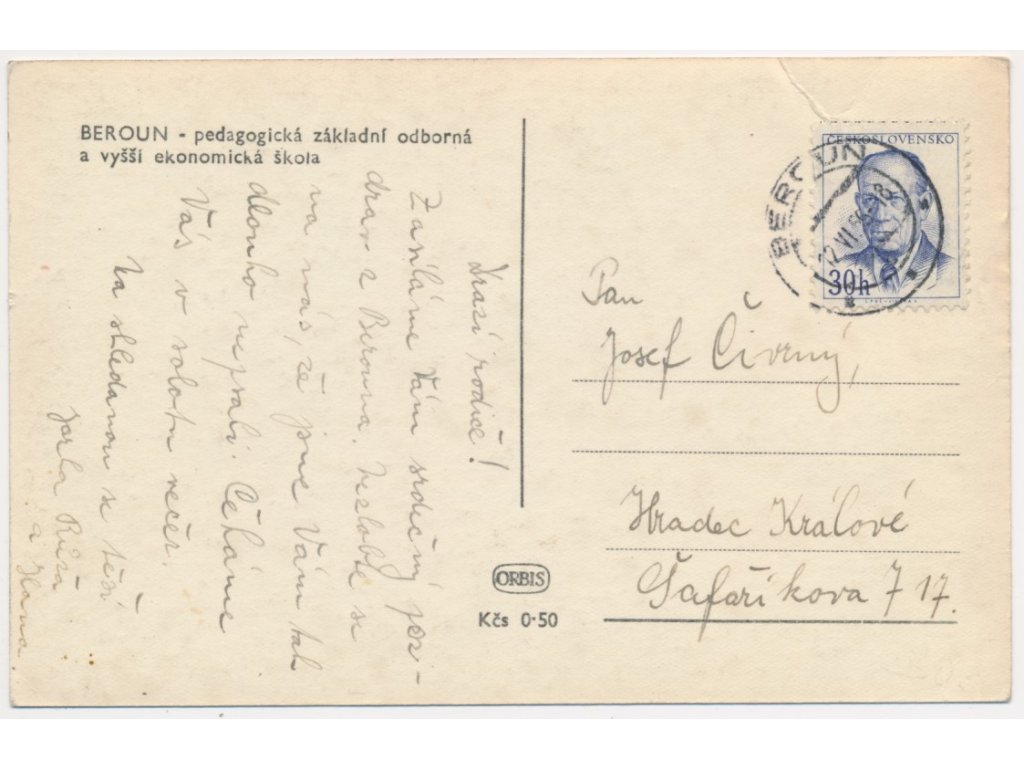 BEROUN - pedagogická základní odborná
a vyšší ekonomická škola
Drazí rodiče!
Zasíláme Vám srdečný poz-
drav z Berouna. Nezlobte se
na nás, že jsme Vám tak
dlouho nepsali. Čekáme
Vás v sobotu večer.
Na shledanou se těší
Jarka Růža
a Hana.
ORBIS
Kčs 0·50
ČESKOSLOVENSKO
30h
BEROUN
Pan
Josef Čiverný,
Hradec Králové
Šafaříkova 717.